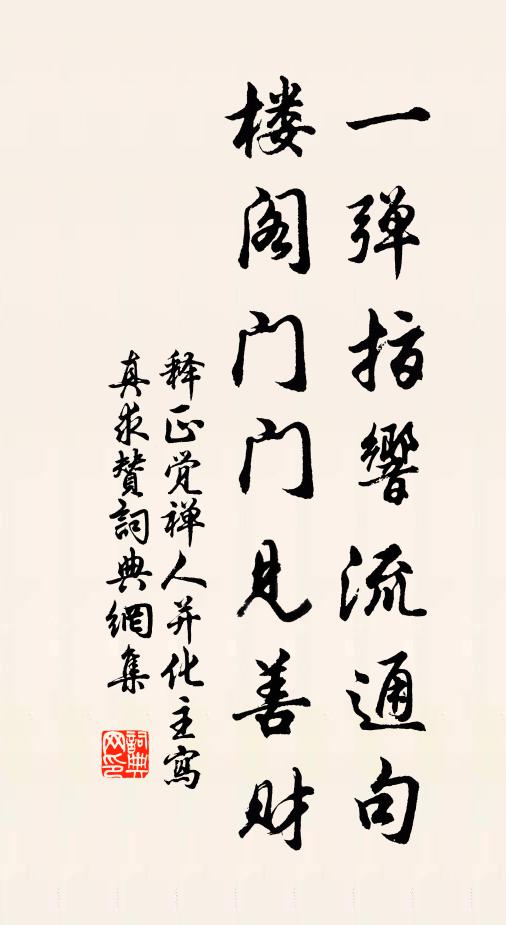 一弹指響流通句
楼阁门门見善财
释正觉禅人并化主寫
真求赞詞典網集
詞典网印